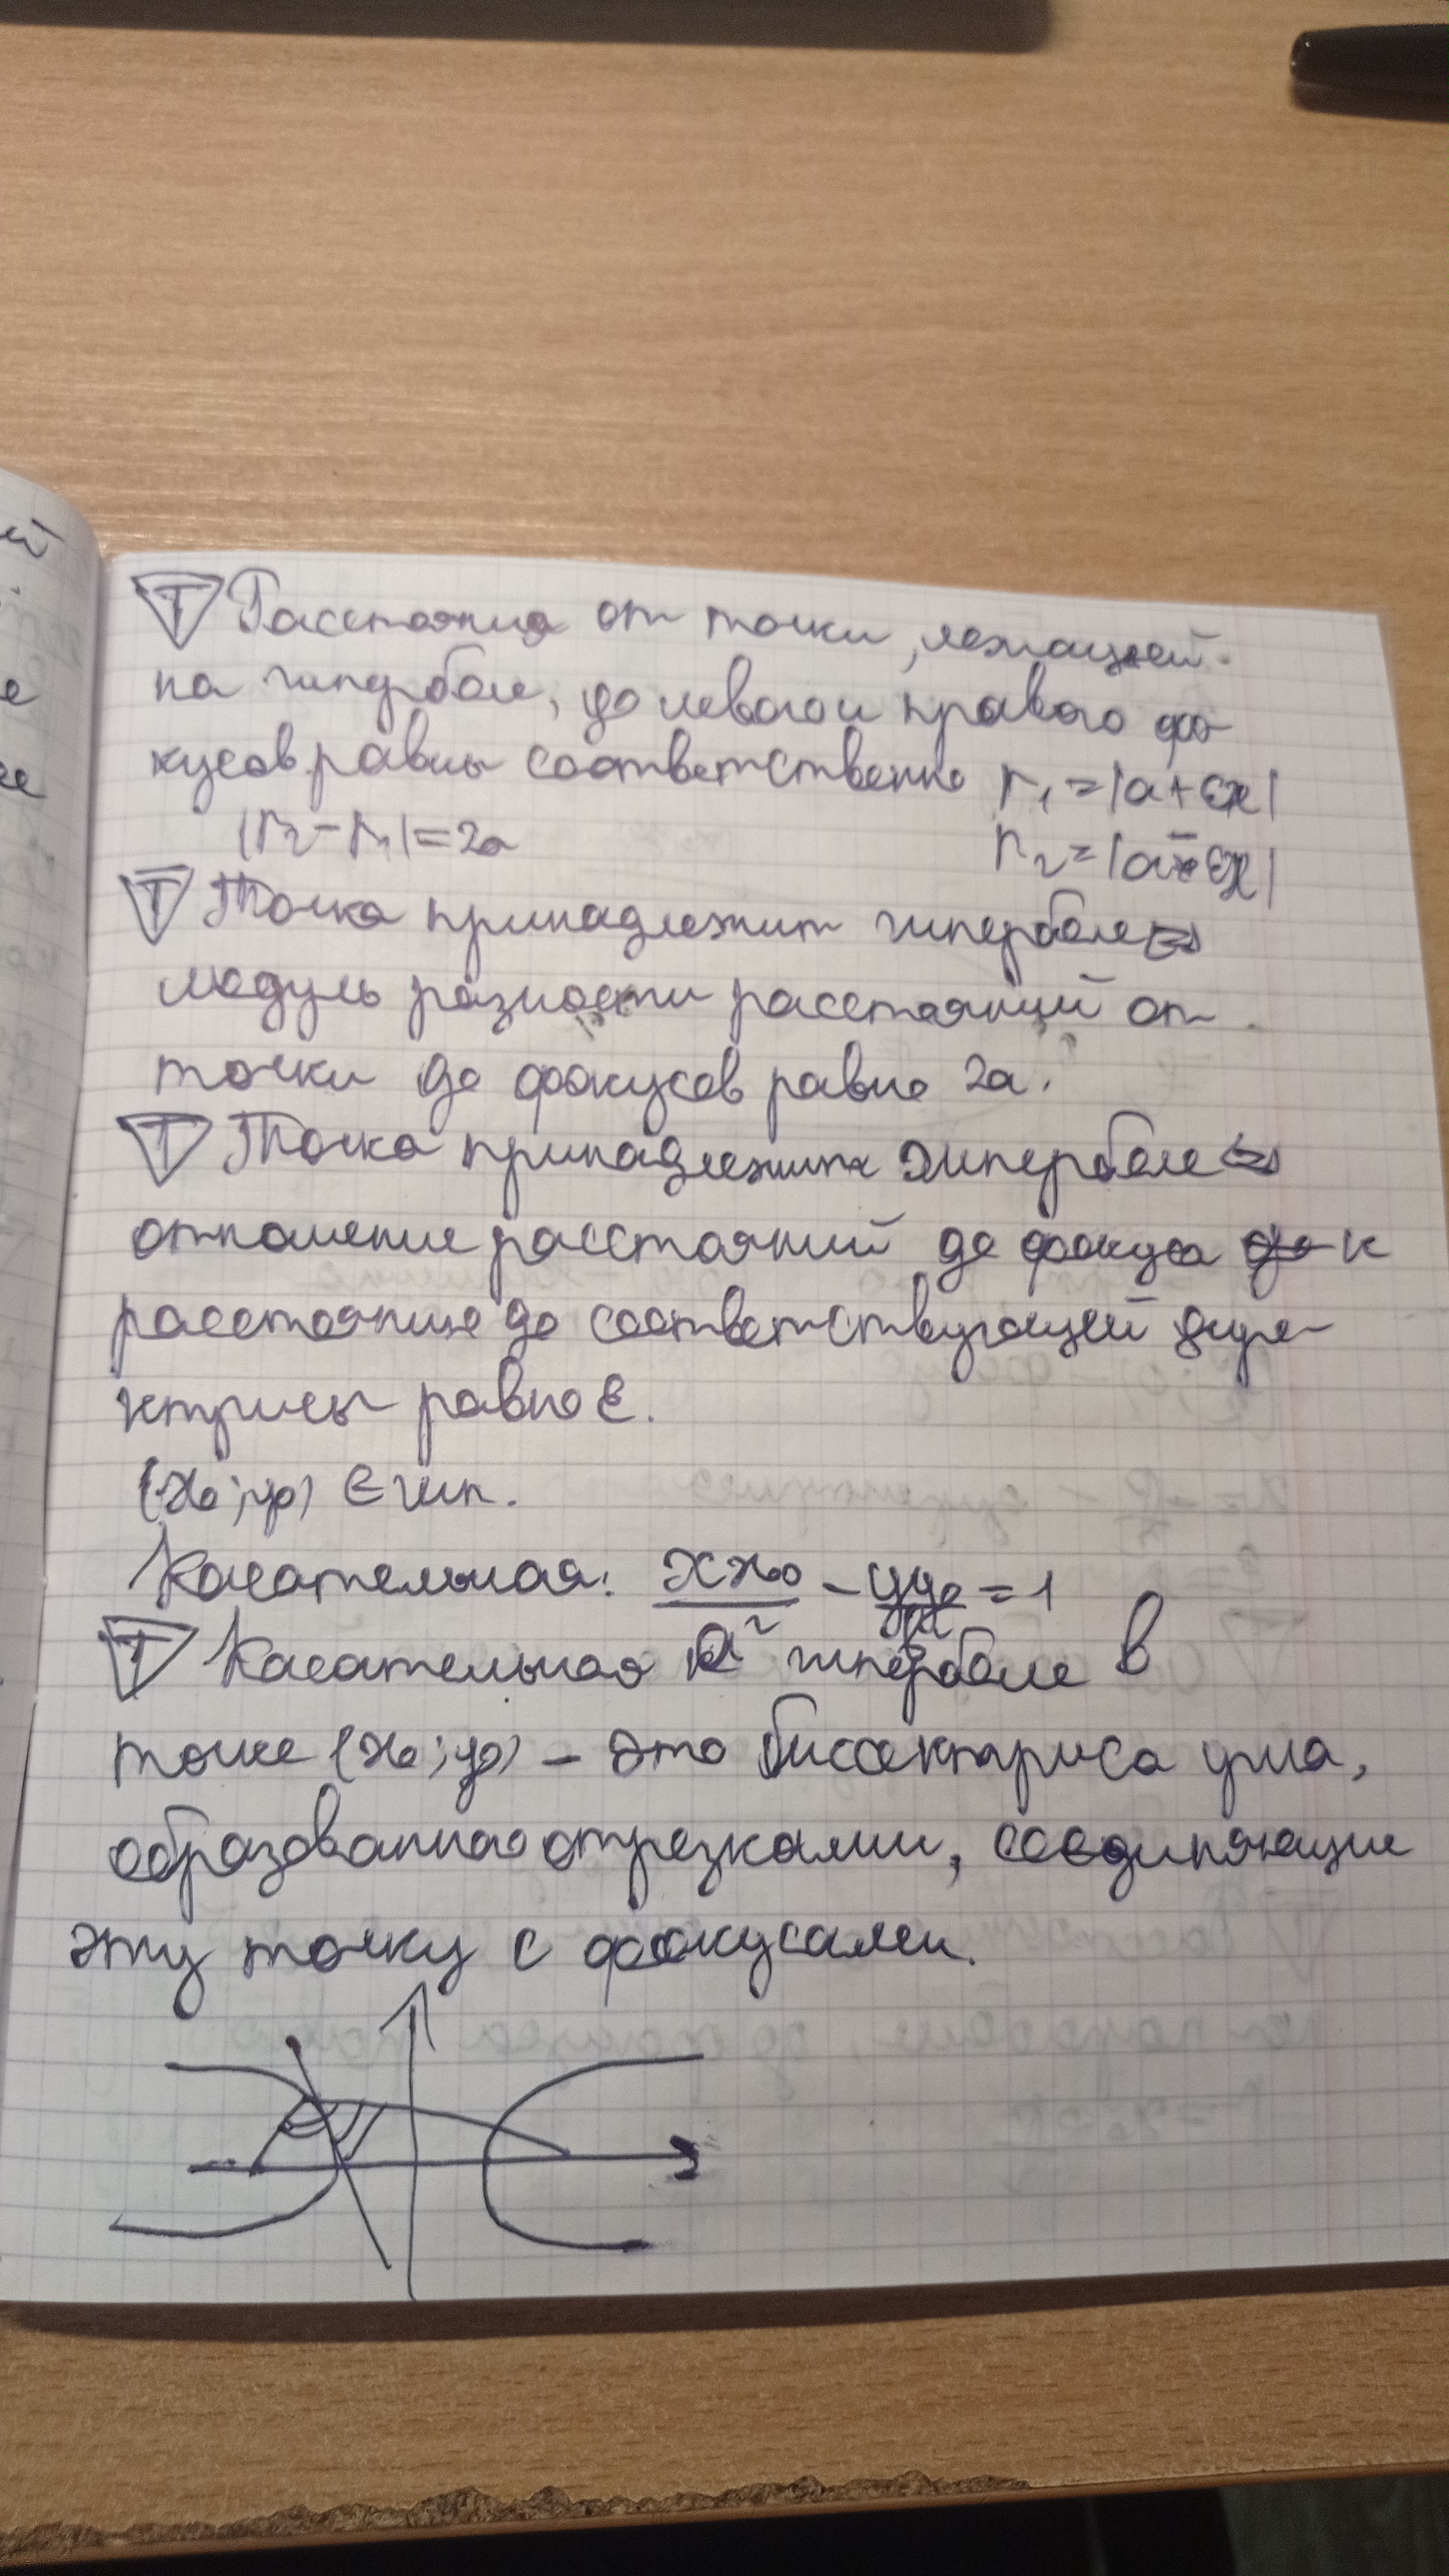 Т Расстояния от точки, лежащей
на гиперболе, до левого и правого фо-
кусов равны соответственно r₁=|a+εx|
|r₂-r₁|=2a r₂=|a-εx|
Т Точка принадлежит гиперболе ⇔
модуль разности расстояний от
точки до фокусов равно 2a.
Т Точка принадлежит гиперболе ⇔
отношение расстояний до фокуса к
расстояние до соответствующей дире-
ктрисы равно ε.
(x₀;y₀) ∈ гип.
Касательная: xx₀/a² - yy₀/b² = 1
Т Касательная к гиперболе в
точке (x₀;y₀) - это биссектриса угла,
образованного отрезками, соединяющие
эту точку с фокусами.